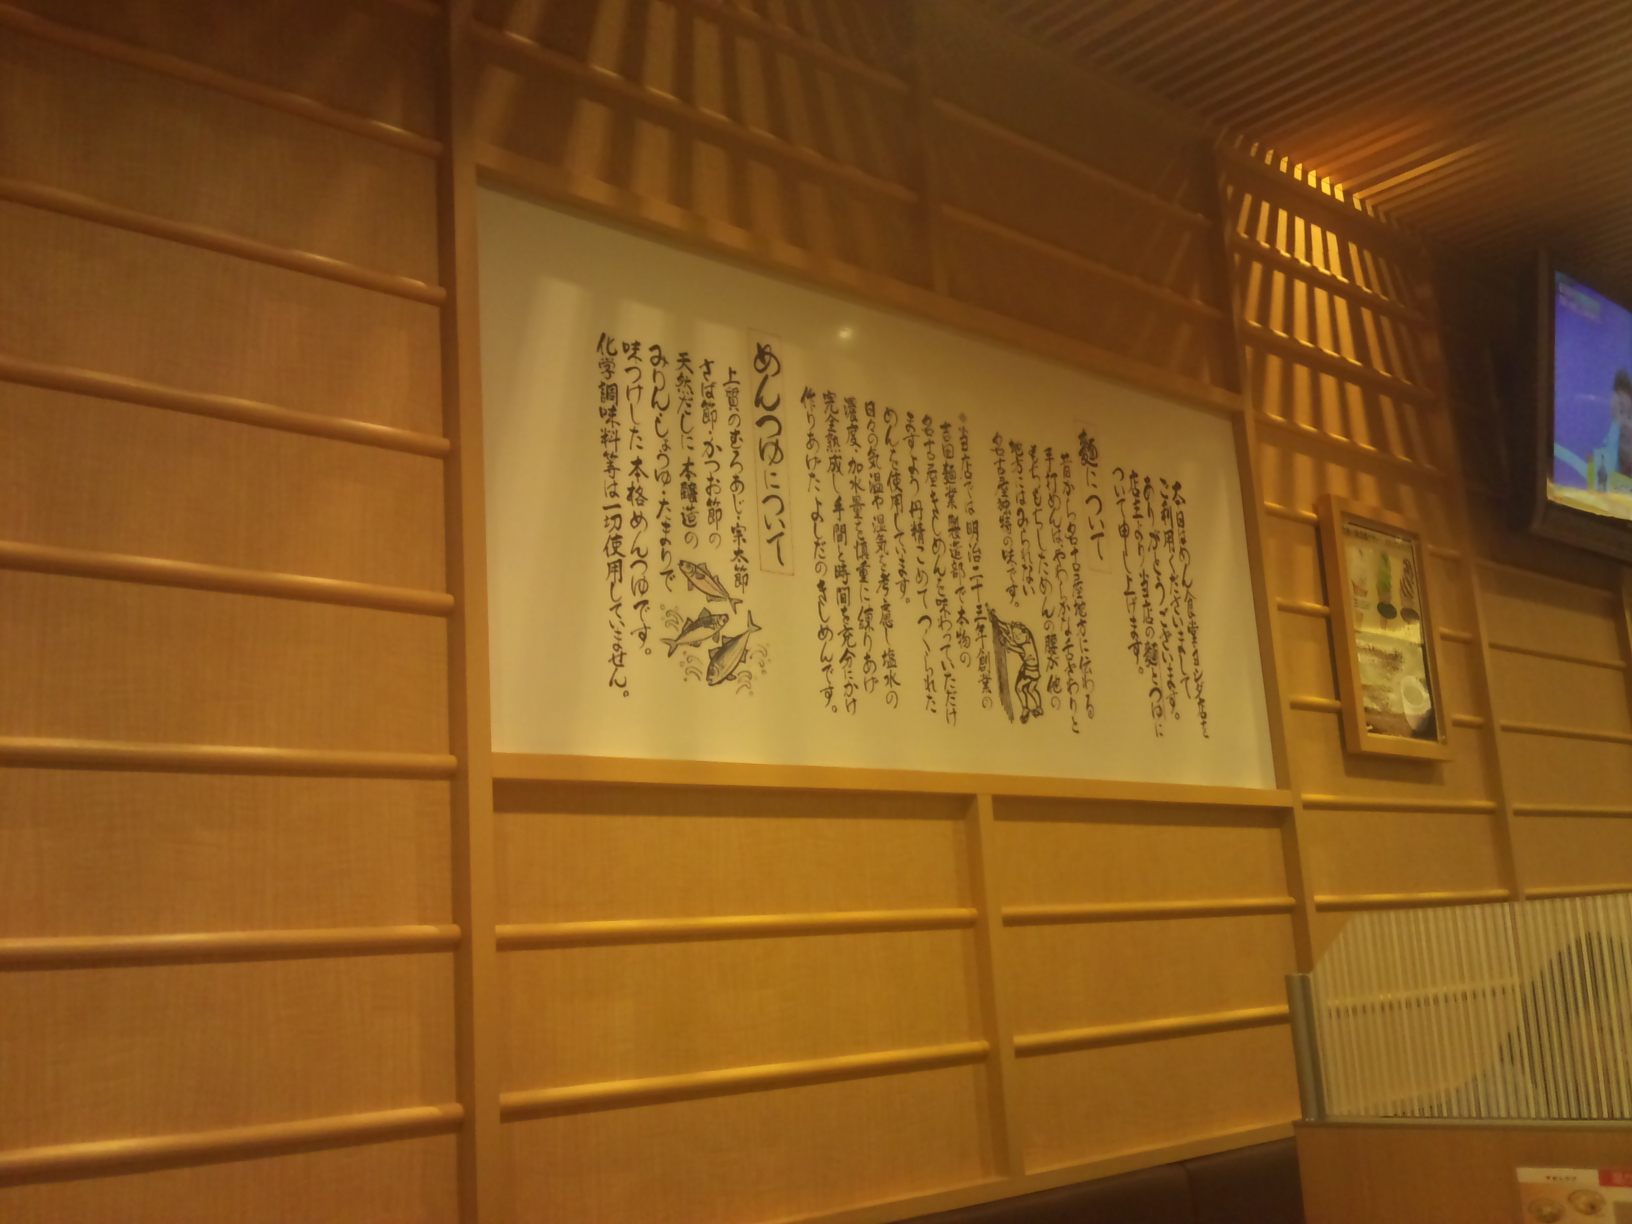 本日はめん食堂ヨシダ名に
ご利用くださいまして
ありがとうございます。
店主より当店の麺とつゆに
ついて申し上げます。
麺について
昔から名古屋地方に伝わる
手打めんはやわらかいなかにも
もちもちとしためんの腰が他の
地方にはみられない
名古屋独特の味です。
※当店では明治二十三年創業の
吉田麺業製造部で本物の
名古屋きしめんを味わっていただけ
ますよう丹精こめてつくられた
めんを使用しています。
日々の気温や湿気を考慮し塩水の
濃度、加水量を慎重に練りあげ
完全熟成し手間と時間を充分にかけ
作りあげたよしだのきしめんです。
めんつゆについて
上質のむろあじ・宗太節
さば節・かつお節の
天然だしに本醸造の
みりん・しょうゆ・たまりで
味つけした本格めんつゆです。
化学調味料等は一切使用していません。